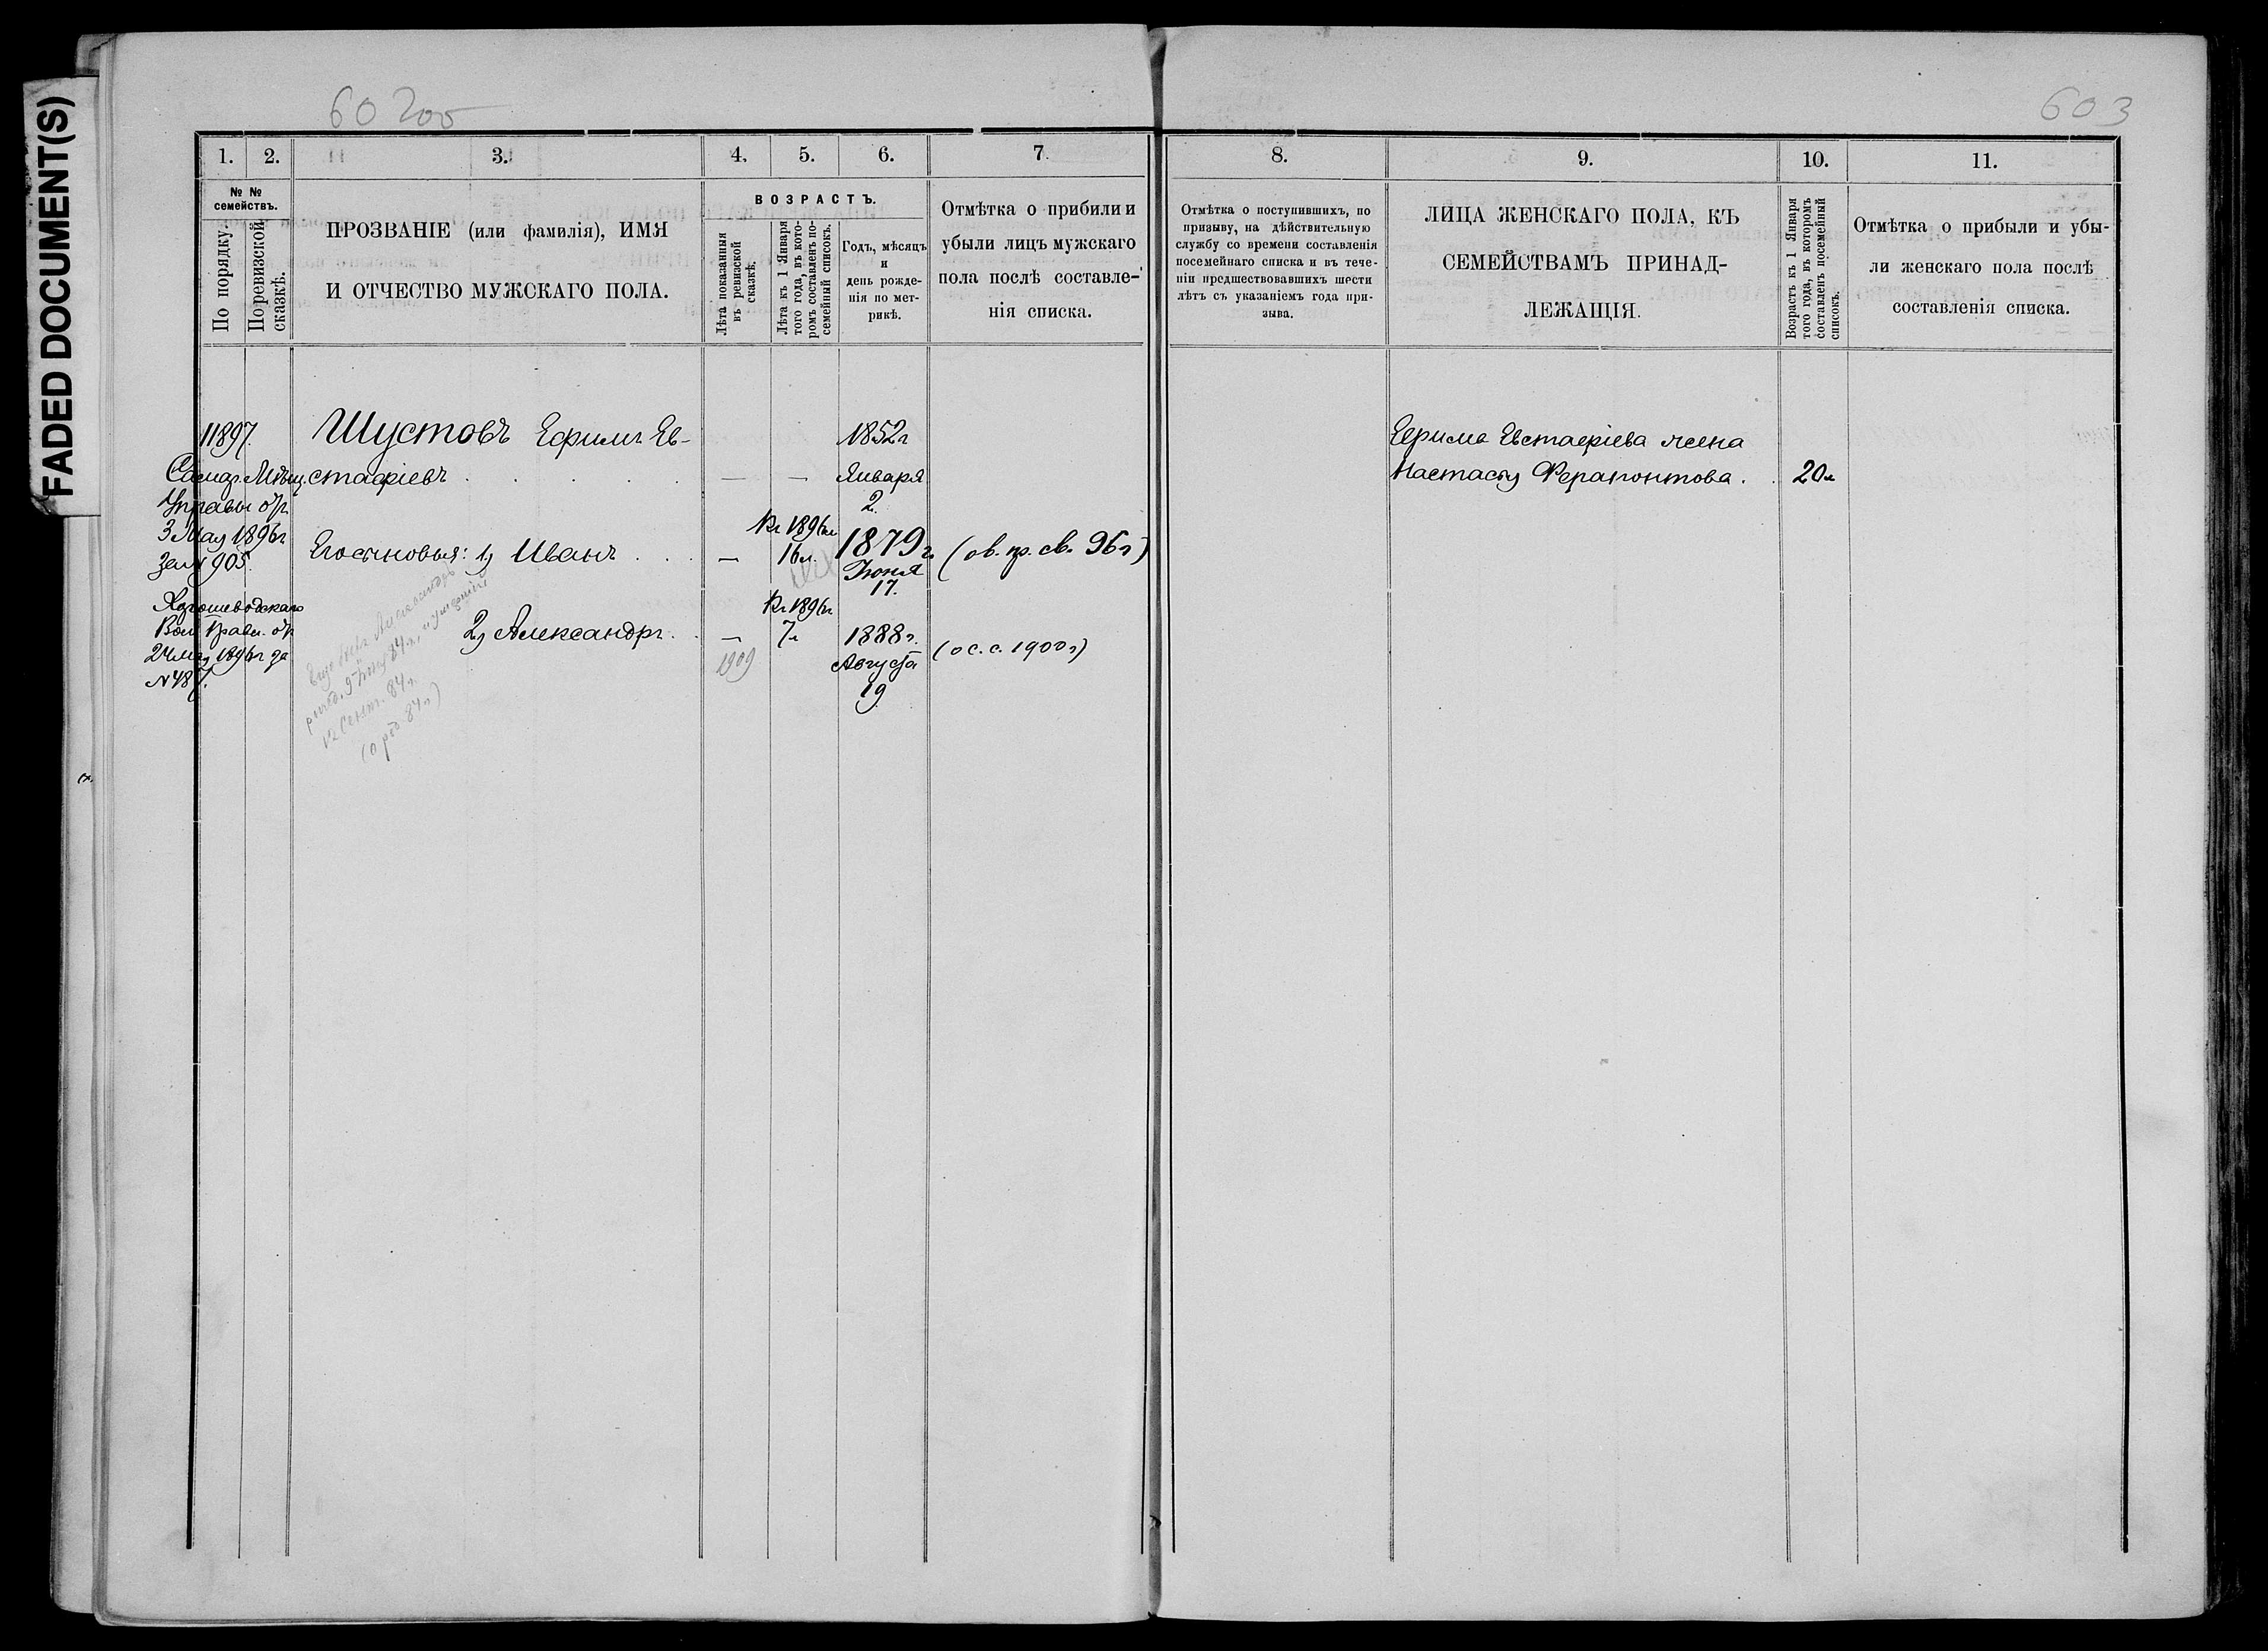 FADED DOCUMENT(S)
60 200
603
1. 2. 3. 4. 5. 6. 7.
8. 9. 10. 11.
№ № семействъ.
По порядку.
По ревизской сказкѣ.
ПРОЗВАНІЕ (или фамилія), ИМЯ
И ОТЧЕСТВО МУЖСКАГО ПОЛА.
ВОЗРАСТЪ.
Лѣта показанныя
въ ревизской
сказкѣ.
Лѣта къ 1 Января
того года, въ кото-
ромъ составленъ по-
семейный списокъ.
Годъ, мѣсяцъ
и
день рожде-
нія по мет-
рикѣ.
Отмѣтка о прибили и
убыли лицъ мужскаго
пола послѣ составле-
нія списка.
Отмѣтка о поступившихъ, по
призыву, на дѣйствительную
службу со времени составленія
посемейнаго списка и въ тече-
ніи предшествовавшихъ шести
лѣтъ съ указаніемъ года при-
зыва.
ЛИЦА ЖЕНСКАГО ПОЛА, КЪ
СЕМЕЙСТВАМЪ ПРИНАД-
ЛЕЖАЩІЯ.
Возрастъ къ 1 Января
того года, въ которомъ
составленъ посемейный
списокъ.
Отмѣтка о прибыли и убы-
ли женскаго пола послѣ
составленія списка.
11897.
Самар. Мѣщ.
Управы от
3 Мая 1896г
за № 905.
Вол. Правл. от
24 мая 1896г за
N 487.
Шустовъ Ефимъ Ев-
стафіевъ . . . . . — — 1852г Января 2.
Его сыновья: 1) Иванъ . . . — Къ 1896г 16л. 1879г. Іюня 17. (ов. пр. св. 96г)
2) Александръ . . — Къ 1896г 7л 1888г. Августа 19 (о с. с. 1900г)
1909
84г.
Сент. 84г.
84г)
Ефима Евстафіева жена
Настасья Ферапонтова . . 20л